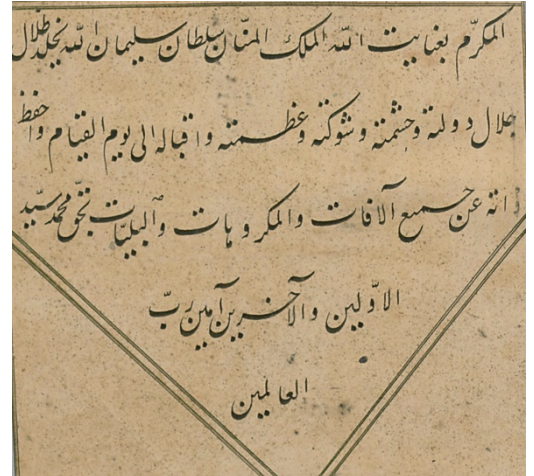 المكرّم بعنايت الله الملك المنّان سلطان سليمان الله يخلد ظلال
جلال دولته وحشمته و شوكته وعظمته و اقباله الى يوم القيام واحفظ
ذاته عن جميع آلافات والمكروهات والبليّات بحّق محمد سيّد
الاوّلين والآخرين آمين ربّ
العالمين